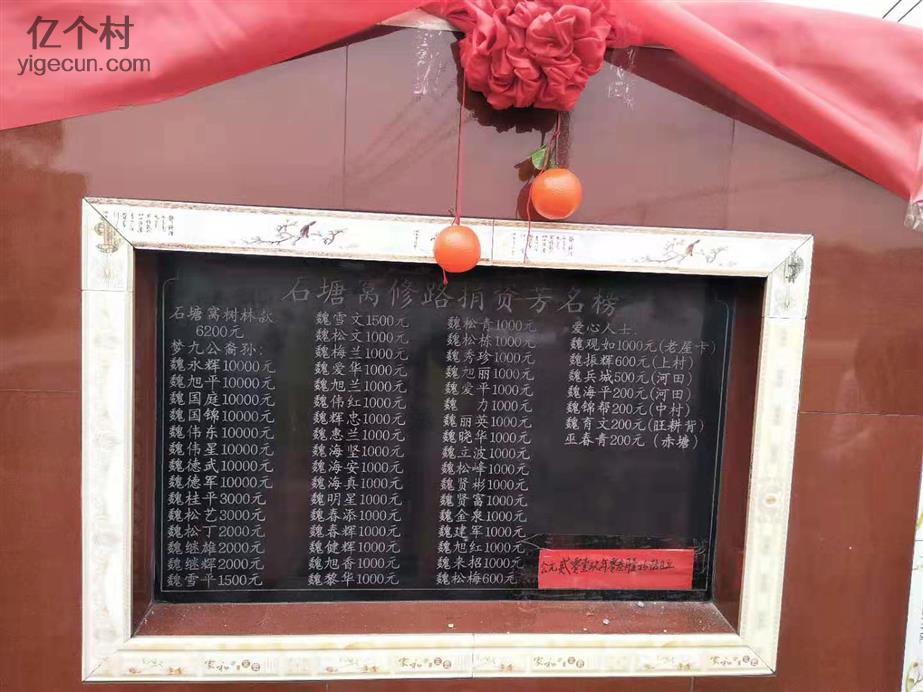 亿个村
yigecun.com
石塘窝修路捐资芳名榜
石塘窝树林款
6200元
梦九公裔孙:
魏永辉10000元
魏旭平10000元
魏国庭10000元
魏国锦10000元
魏伟东10000元
魏伟星10000元
魏德武10000元
魏德军10000元
魏桂平3000元
魏松艺3000元
魏松丁2000元
魏继雄2000元
魏继辉2000元
魏雪平1500元
魏雪文1500元
魏松文1000元
魏梅兰1000元
魏爱华1000元
魏旭兰1000元
魏伟红1000元
魏辉忠1000元
魏惠兰1000元
魏海坚1000元
魏海安1000元
魏海真1000元
魏明星1000元
魏春添1000元
魏春辉1000元
魏健辉1000元
魏旭香1000元
魏黎华1000元
魏松青1000元
魏松栋1000元
魏秀珍1000元
魏旭丽1000元
魏爱平1000元
魏 力1000元
魏丽英1000元
魏晓华1000元
魏立波1000元
魏松峰1000元
魏贤彬1000元
魏贤富1000元
魏金泉1000元
魏建军1000元
魏旭红1000元
魏来招1000元
魏松梅600元
爱心人士:
魏观如1000元(老屋卡)
魏振辉600元(上村)
魏兵城500元(河田)
魏海平200元(河田)
魏锦帮200元(中村)
魏育文200元(旺耕背)
巫春青200元(赤塘)